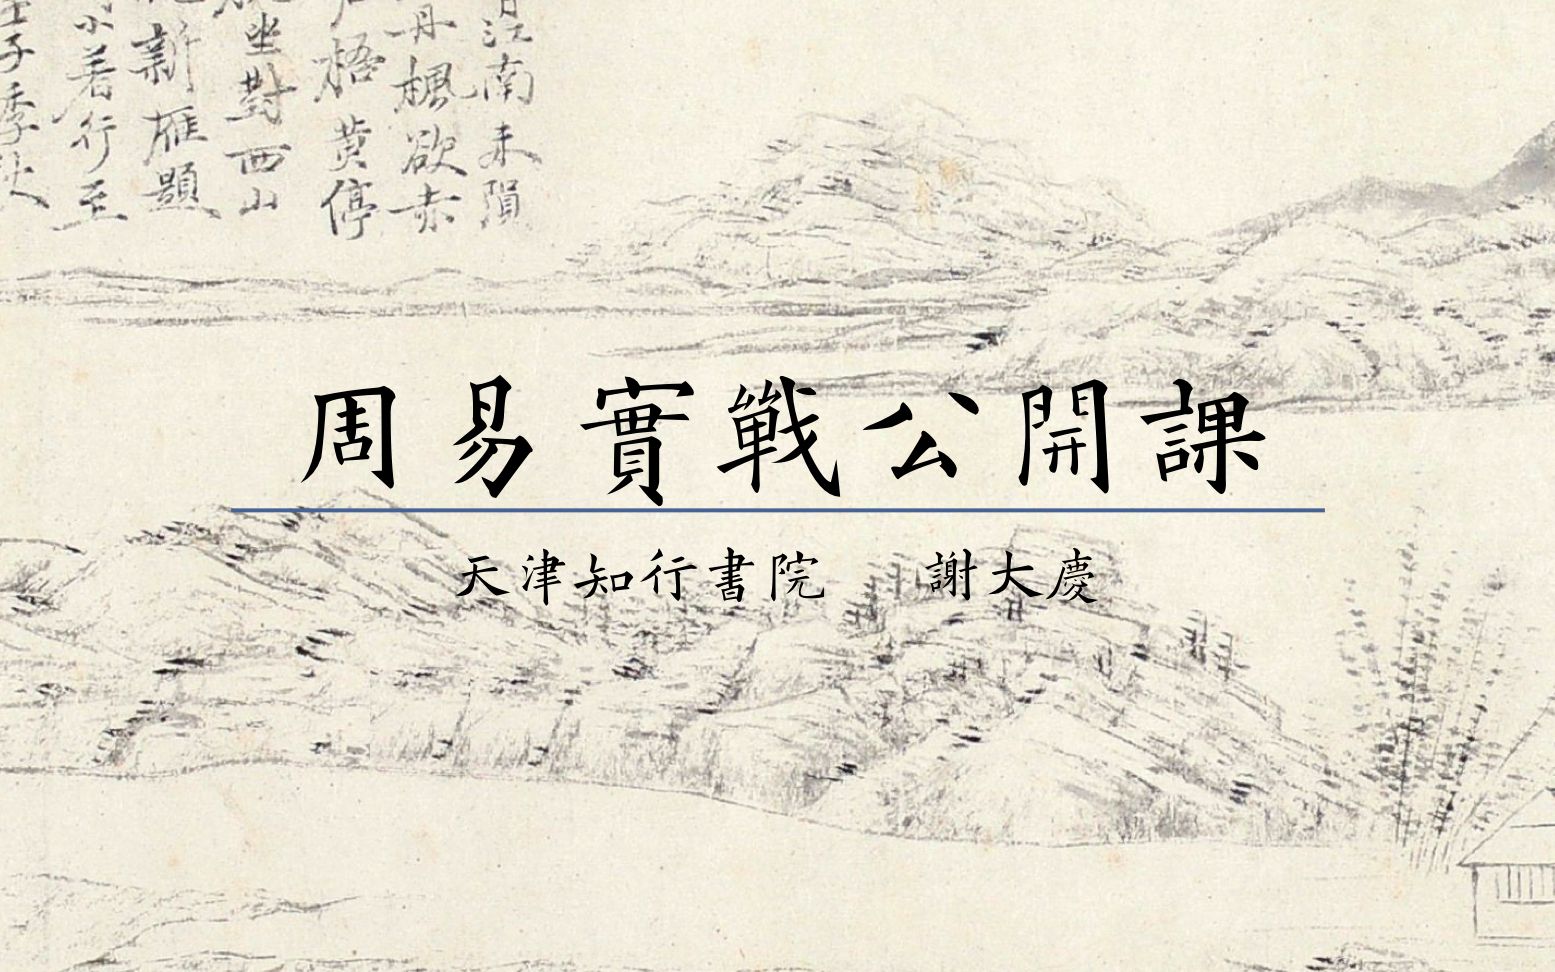 江南未隕
丹楓欲赤
梧黄停
坐對西山
新雁題
著行至
子季秋
周易實戰公開課
天津知行書院 謝大慶